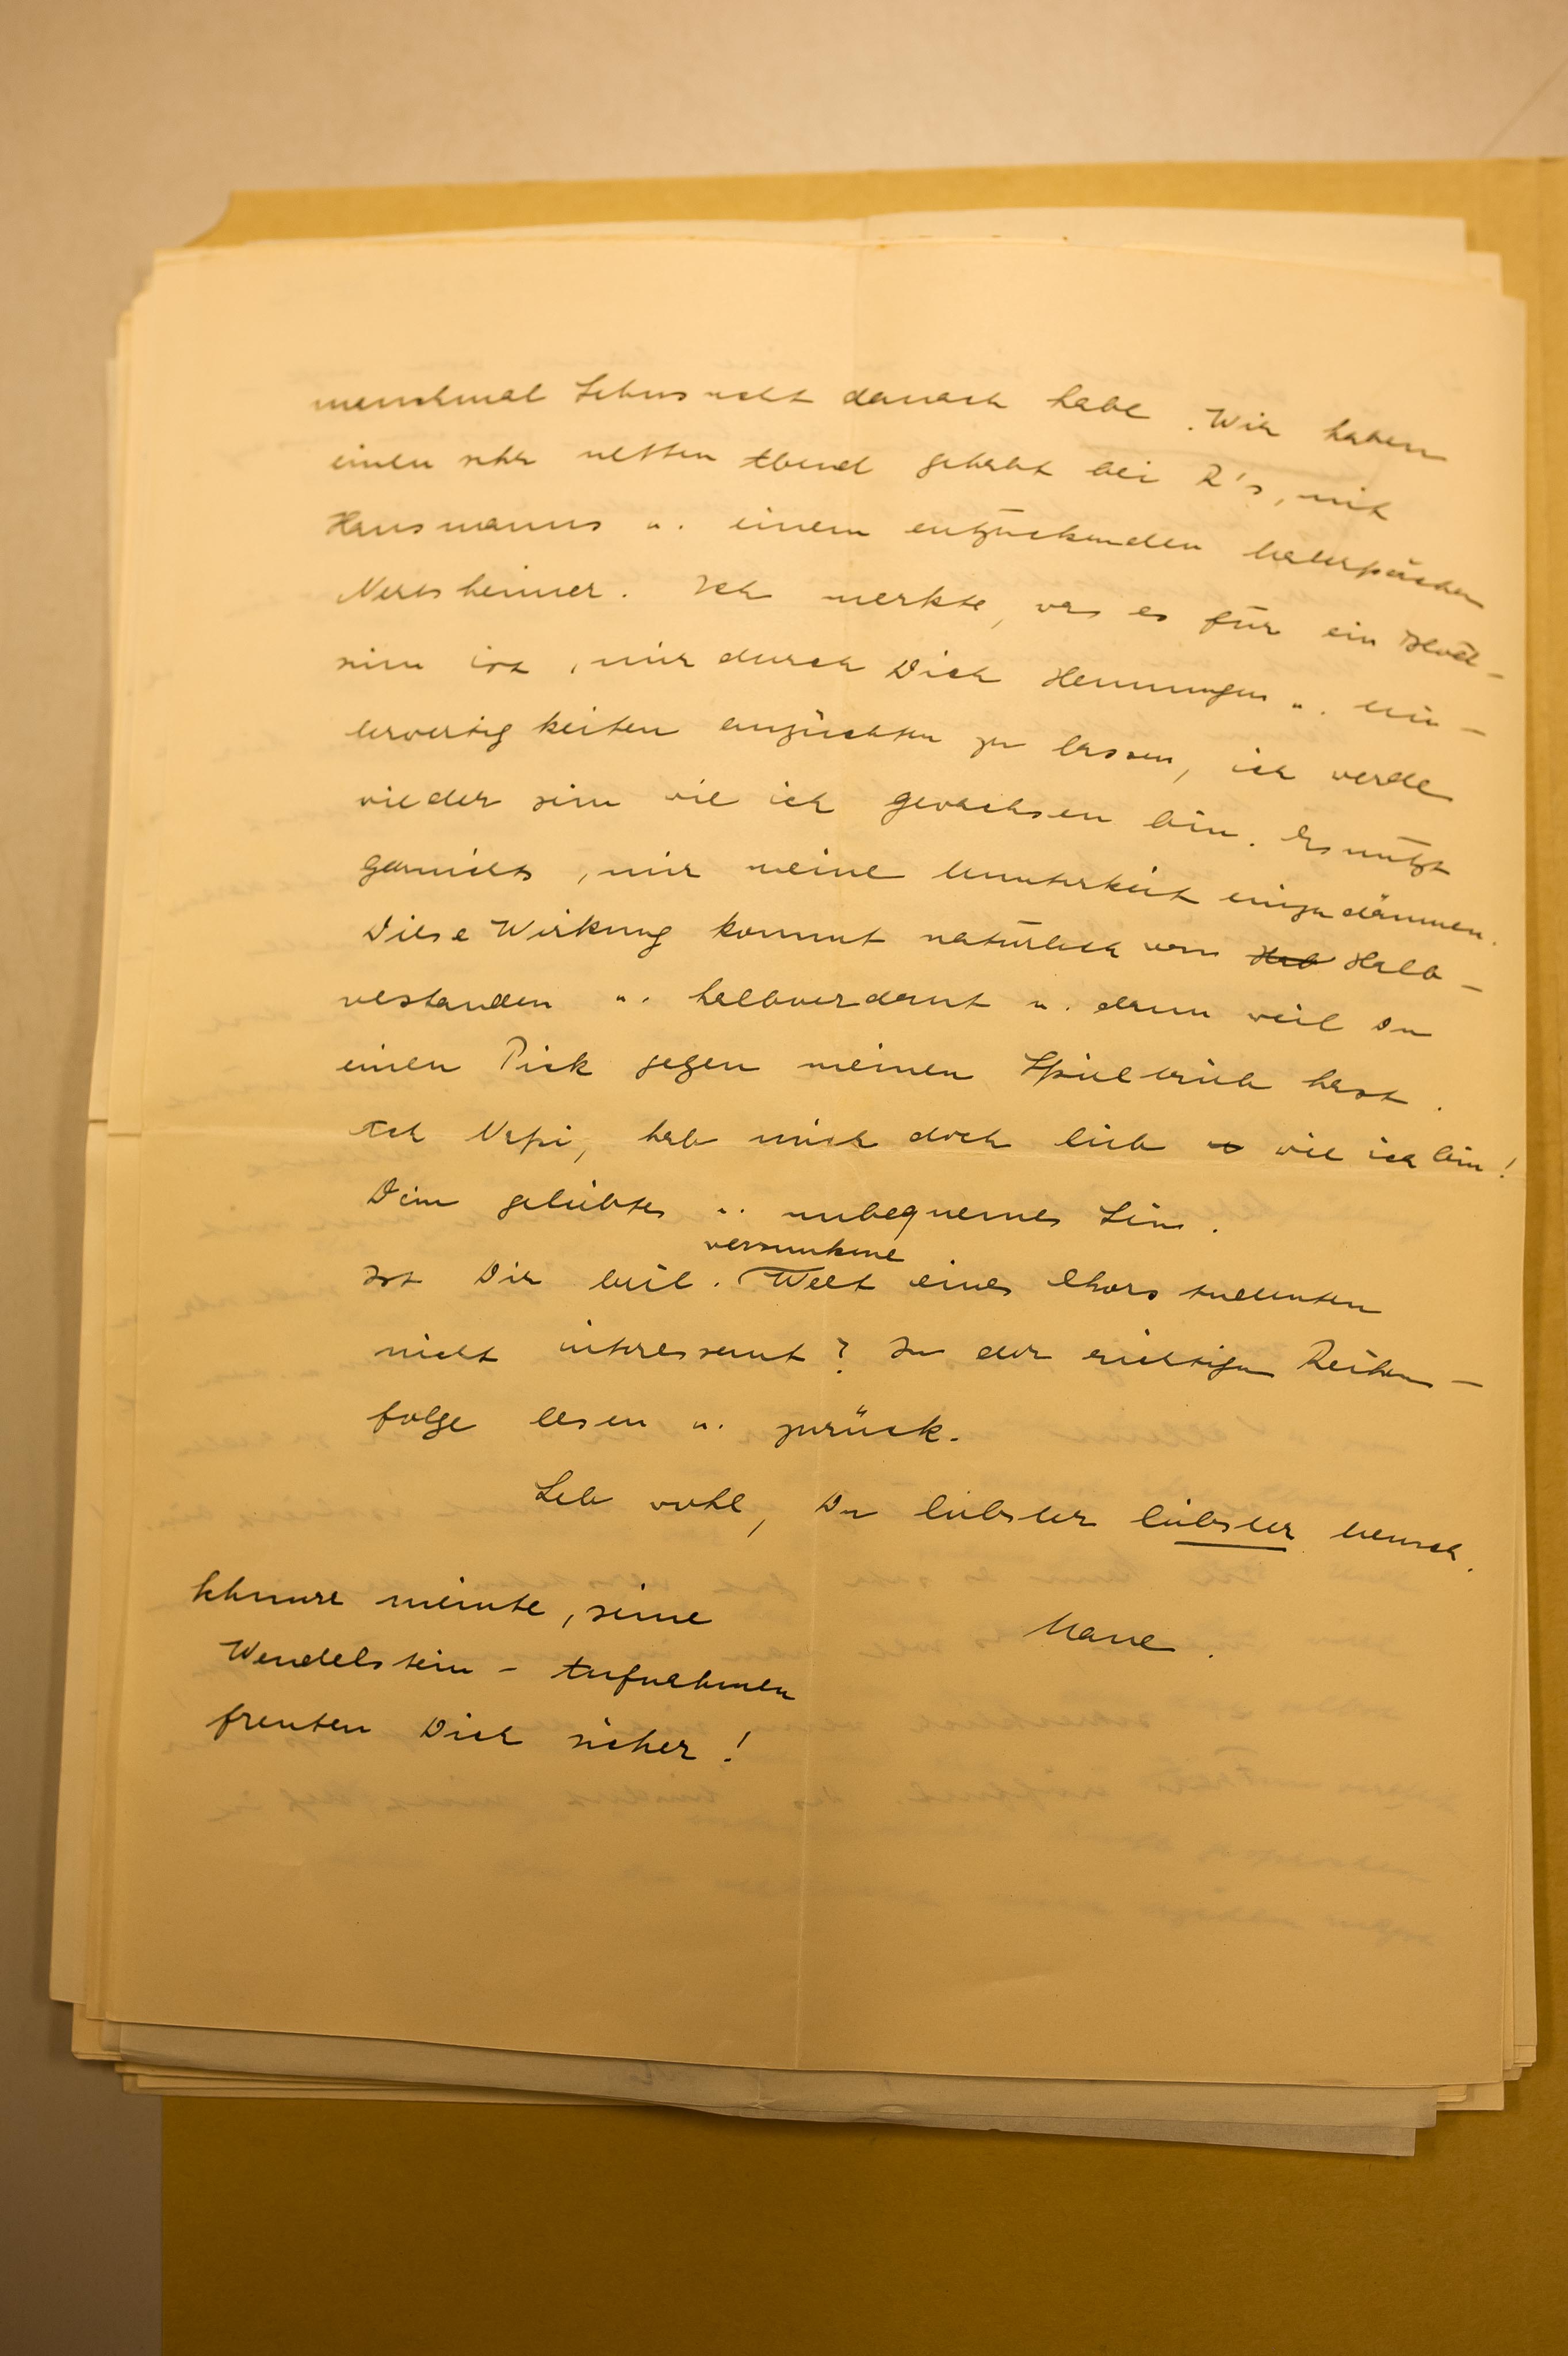 manchmal Sehnsucht danach habe. Wir haben
einen sehr netten Abend gehabt bei R's, mit
Hausmanns u. einem entzückenden Malerpärchen
Nertsheimer. Ich merkte, was es für ein Blöd-
sinn ist, mir durch Dich Hemmungen u. Min-
derwertigkeiten anzüchten zu lassen, ich werde
wieder sein wie ich gewachsen bin. Es nützt
garnichts, mir meine Munterkeit einzudämmen.
Diese Wirkung kommt natürlich von Hab Halb-
vestanden u. halbverdaut u. dann weil Du
einen Pick gegen meinen Spieltrieb hast.
Ach Napi, hab mich doch lieb wie ich bin!
Dein geliebtes u. unbequemes Sein.
versunkene
Ist Dir beil. Welt eines Chorstudenten
nicht interessant? In der richtigen Reihen-
folge lesen u. zurück.
Leb wohl, Du liebster liebster Mensch.
Mane.
Schnurre meinte, seine
Wendelstein-Aufnahmen
freuten Dich sicher!